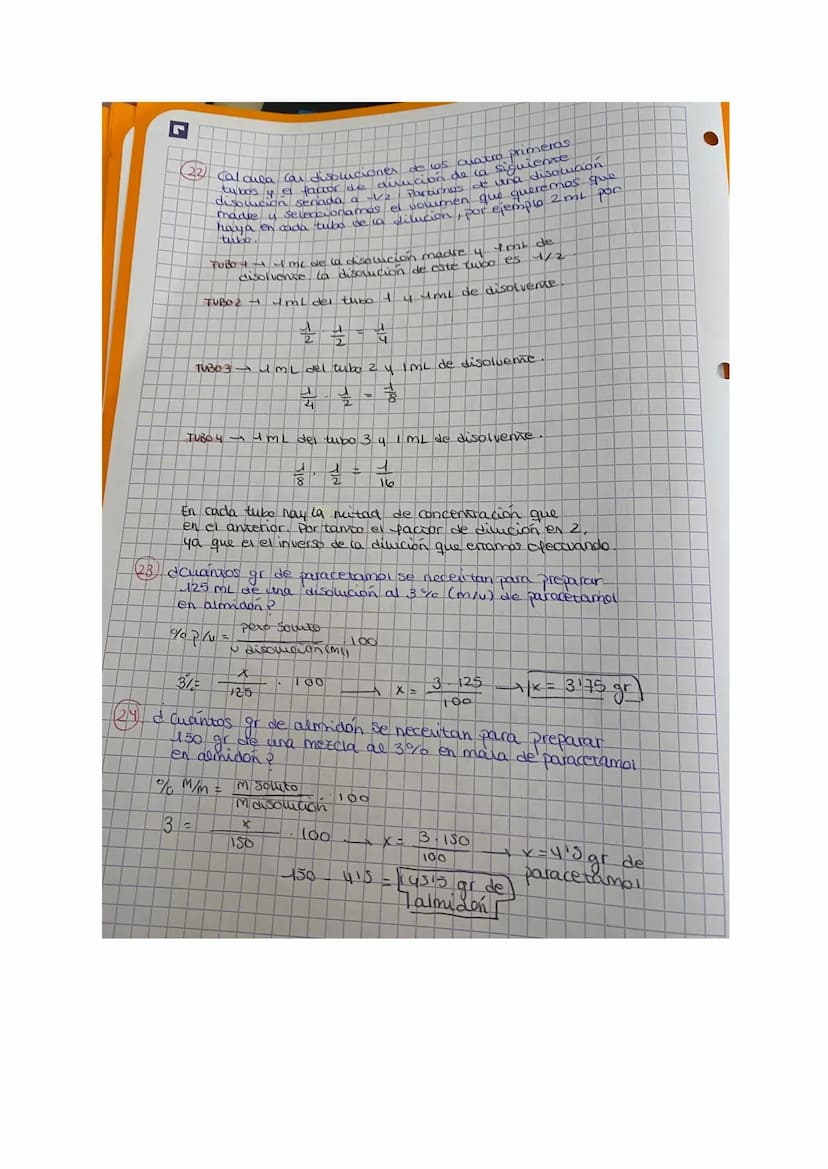 22 Calcula las disoluciones de los cuatro primeros
tubos y el factor de dilución de la siguiente
disolución seriada a 1/2. Partimos de una disolución
madre y seleccionamos el volumen que queremos que
haya en cada tubo de la dilución, por ejemplo 2mL por
tubo.
TUBO 1 → 1 mL de la disolución madre y 1mL de
disolvente. La disolución de este tubo es 1/2.
TUBO 2 → 1mL del tubo 1 y 1mL de disolvente.
1/2 · 1/2 = 1/4
TUBO 3 → 1mL del tubo 2 y 1mL de disolvente.
1/4 · 1/2 = 1/8
TUBO 4 → 1mL del tubo 3 y 1mL de disolvente.
1/8 · 1/2 = 1/16
En cada tubo hay la mitad de concentración que
en el anterior. Por tanto el factor de dilución es 2,
ya que es el inverso de la dilución que estamos efectuando.
23 ¿Cuántos gr de paracetamol se necesitan para preparar
125 mL de una disolución al 3% (m/v) de paracetamol
en almidón?
% P/V = peso soluto / v disolución (ml) · 100
3% = x / 125 · 100 → x = 3 · 125 / 100 → x = 3'75 gr
24 ¿Cuántos gr de almidón se necesitan para preparar
150 gr de una mezcla al 3% en masa de paracetamol
en almidón?
% M/m = M soluto / M disolución · 100
3 = x / 150 · 100 → x = 3 · 150 / 100 → x = 4'5 gr de
paracetamol
150 - 4'5 = 145'5 gr de
almidón